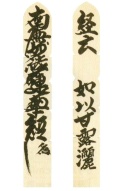 経云 如以甘露灑
南無妙法蓮華経